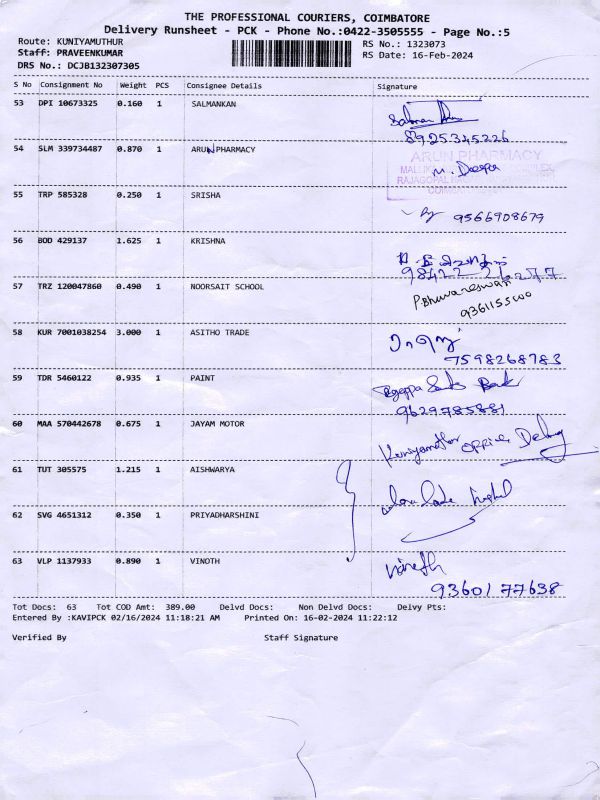 THE PROFESSIONAL COURIERS, COIMBATORE
Delivery Runsheet - PCK - Phone No.:0422-3505555 - Page No.:5
Route: KUNIYAMUTHUR
RS No.: 1323073
Staff: PRAVEENKUMAR
RS Date: 16-Feb-2024
DRS No.: DCJB132307305
S No Consignment No Weight PCS Consignee Details Signature
53 DPI 10673325 0.160 1 SALMANKAN
Salman
8925345226
54 SLM 339734487 0.870 1 ARUN PHARMACY
ARUN PHARMACY
M. Deepa
55 TRP 585328 0.250 1 SRISHA
9566908679
56 BOD 429137 1.625 1 KRISHNA
98422 26277
57 TRZ 120047860 0.490 1 NOORSAIT SCHOOL
P.Bhuvaneswari
9361155500
58 KUR 7001038254 3.000 1 ASITHO TRADE
7598268783
59 TDR 5460122 0.935 1 PAINT
9629785881
60 MAA 570442678 0.675 1 JAYAM MOTOR
Kuniyamuthur office Delivery
61 TUT 305575 1.215 1 AISHWARYA
62 SVG 4651312 0.350 1 PRIYADHARSHINI
63 VLP 1137933 0.890 1 VINOTH
Vinoth
9360177638
Tot Docs: 63 Tot COD Amt: 389.00 Delvd Docs: Non Delvd Docs: Delvy Pts:
Entered By :KAVIPCK 02/16/2024 11:18:21 AM Printed On: 16-02-2024 11:22:12
Verified By Staff Signature